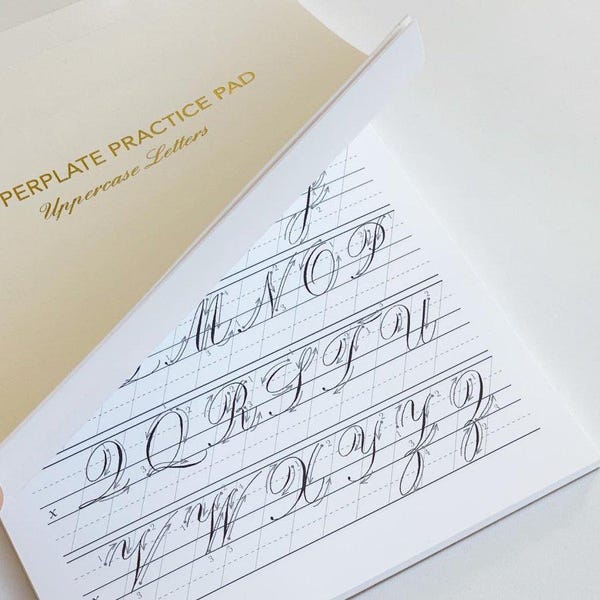 PERPLATE PRACTICE PAD
Uppercase Letters
M N O P
Q Q R S T U
x
V W X Y Y Z Z
x